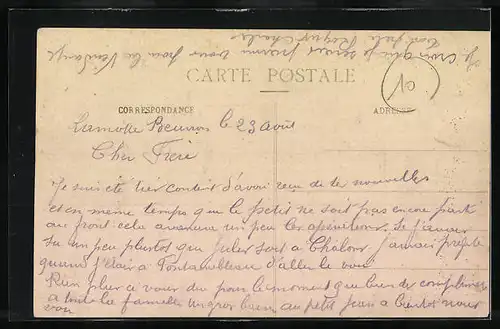 je crois que je serais pour la Vendange
ton frère Charles
CARTE POSTALE
CORRESPONDANCE
ADRESSE
Lamotte Beuvron le 23 août
Cher Frère
Je suis été tres content d'avoir reçu de tes nouvelles
et en même temps que le petit ne soit pas encore parti
au front cela avance un peu les opérations. Si j'avais
su un peu plutot que Jules soit à Chalon j'aurais profité
quand j'étais à Fontainebleau d'aller le voir.
Rien plus a vous dire pour le moment que bien des compliments
a toute la famille un gros baiser au petit Jean a bientot vous
voir